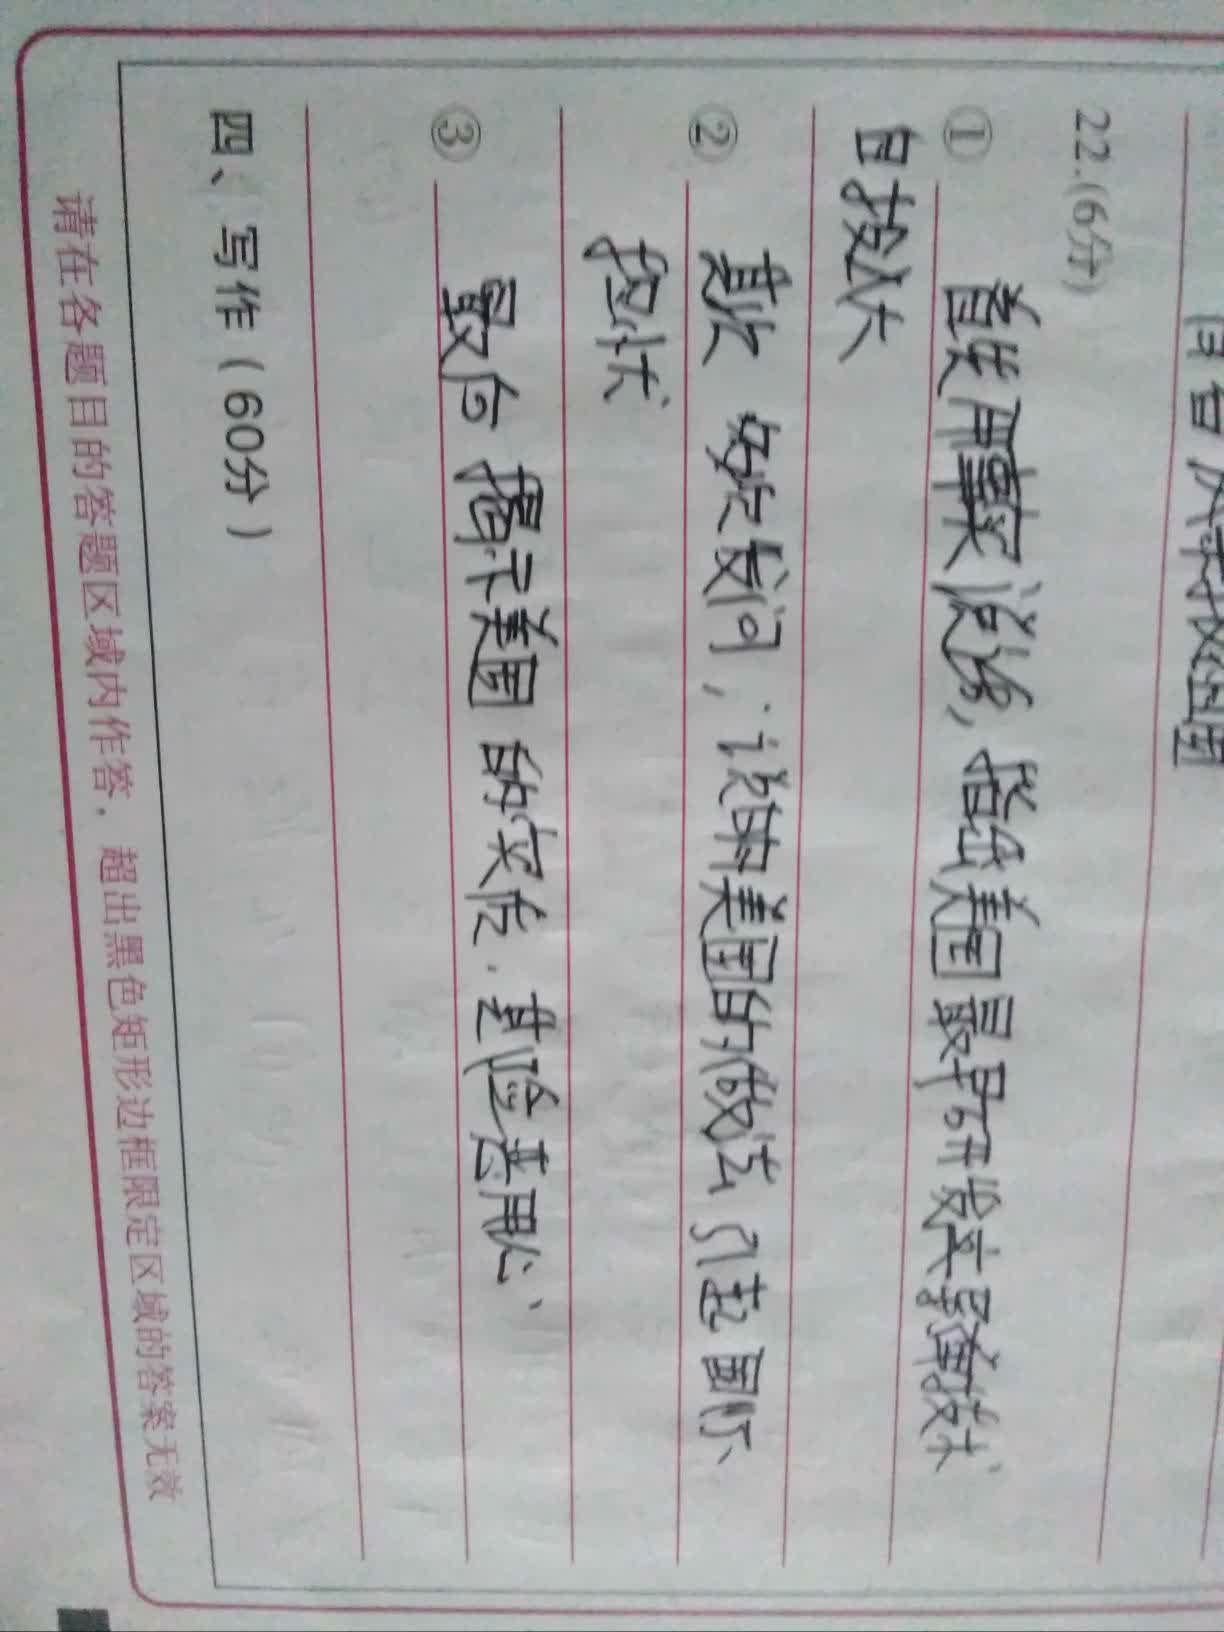 22.(6分)
① 首先用事实说话，指出美国最早研发交易毒技术
且投入大
② 其次 如此发问，说明美国的做法引起国际
担忧
③ 最后 揭示美国的实质.其险恶用心、
四、写作(60分)
请在各题目的答题区域内作答，超出黑色矩形边框限定区域的答案无效